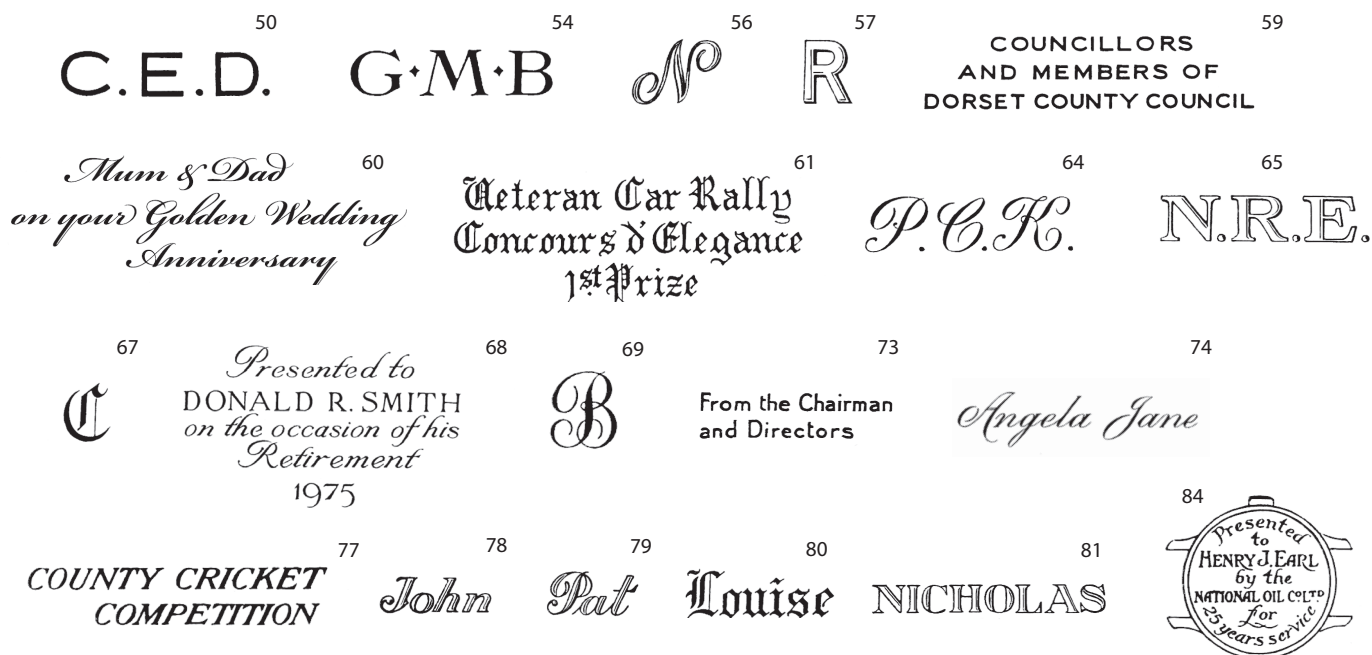 50
C.E.D.
54
G·M·B
56
N
57
R
59
COUNCILLORS
AND MEMBERS OF
DORSET COUNTY COUNCIL
60
Mum & Dad
on your Golden Wedding
Anniversary
61
Veteran Car Rally
Concours d'Elegance
1st Prize
64
P.C.K.
65
N.R.E.
67
C
68
Presented to
DONALD R. SMITH
on the occasion of his
Retirement
1975
69
B
73
From the Chairman
and Directors
74
Angela Jane
77
COUNTY CRICKET
COMPETITION
78
John
79
Pat
80
Louise
81
NICHOLAS
84
Presented
to
HENRY J. EARL
by the
NATIONAL OIL CO LTD
for
25 years service